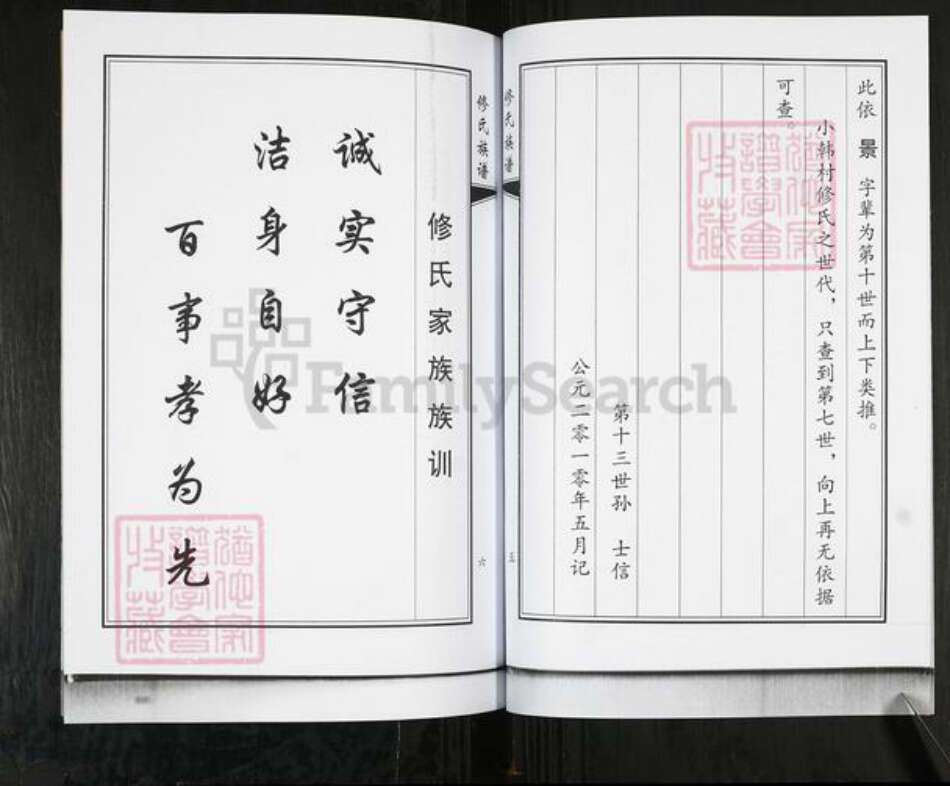 此依 景 字辈为第十世而上下类推。
小韩村修氏之世代，只查到第七世，向上再无依据
可查。
第十三世孙 士信
公元二零一零年五月记
修氏族谱
五
修氏族谱
六
修氏家族族训
诚实守信
洁身自好
百事孝为先
FamilySearch